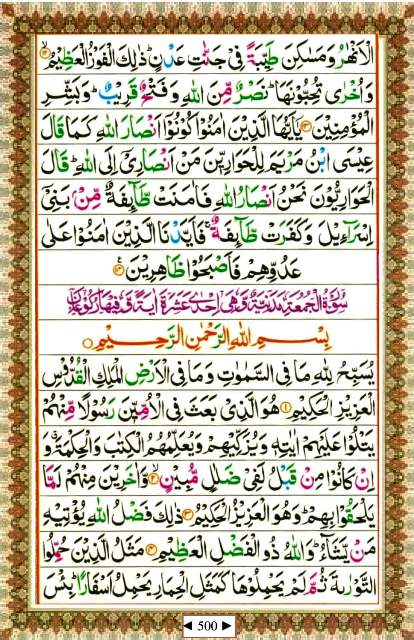 الْاَنْهٰرُ وَمَسٰكِنَ طَيِّبَةً فِیْ جَنّٰتِ عَدْنٍ ؕ ذٰلِكَ الْفَوْزُ الْعَظِیْمُ ۙ﴿۱۲﴾
وَاُخْرٰی تُحِبُّوْنَهَا ؕ نَصْرٌ مِّنَ اللهِ وَفَتْحٌ قَرِیْبٌ ؕ وَبَشِّرِ
الْمُؤْمِنِیْنَ ﴿۱۳﴾ یٰۤاَیُّهَا الَّذِیْنَ اٰمَنُوْا كُوْنُوْۤا اَنْصَارَ اللهِ كَمَا قَالَ
عِیْسَی ابْنُ مَرْیَمَ لِلْحَوَارِیّٖنَ مَنْ اَنْصَارِیْۤ اِلَی اللهِ ؕ قَالَ
الْحَوَارِیُّوْنَ نَحْنُ اَنْصَارُ اللهِ فَاٰمَنَتْ طَّآىِٕفَةٌ مِّنْۢ بَنِیْۤ
اِسْرَآءِیْلَ وَكَفَرَتْ طَّآىِٕفَةٌ ۚ فَاَیَّدْنَا الَّذِیْنَ اٰمَنُوْا عَلٰی
عَدُوِّهِمْ فَاَصْبَحُوْا ظٰهِرِیْنَ ﴿۱۴﴾
سُوْرَةُ الْجُمُعَةِ مَدَنِیَّةٌ وَّهِیَ اِحْدٰی عَشْرَةَ اٰیَةً وَّفِیْهَا رُكُوْعَانِ
بِسْمِ اللهِ الرَّحْمٰنِ الرَّحِیْمِ
یُسَبِّحُ لِلّٰهِ مَا فِی السَّمٰوٰتِ وَمَا فِی الْاَرْضِ الْمَلِكِ الْقُدُّوْسِ
الْعَزِیْزِ الْحَكِیْمِ ﴿۱﴾ هُوَ الَّذِیْ بَعَثَ فِی الْاُمِّیّٖنَ رَسُوْلًا مِّنْهُمْ
یَتْلُوْا عَلَیْهِمْ اٰیٰتِهٖ وَیُزَكِّیْهِمْ وَیُعَلِّمُهُمُ الْكِتٰبَ وَالْحِكْمَةَ ۗ وَ
اِنْ كَانُوْا مِنْ قَبْلُ لَفِیْ ضَلٰلٍ مُّبِیْنٍ ۙ﴿۲﴾ وَّاٰخَرِیْنَ مِنْهُمْ لَمَّا
یَلْحَقُوْا بِهِمْ ؕ وَهُوَ الْعَزِیْزُ الْحَكِیْمُ ﴿۳﴾ ذٰلِكَ فَضْلُ اللهِ یُؤْتِیْهِ
مَنْ یَّشَآءُ ؕ وَاللهُ ذُو الْفَضْلِ الْعَظِیْمِ ﴿۴﴾ مَثَلُ الَّذِیْنَ حُمِّلُوا
التَّوْرٰىةَ ثُمَّ لَمْ یَحْمِلُوْهَا كَمَثَلِ الْحِمَارِ یَحْمِلُ اَسْفَارًا ؕ بِئْسَ
◄ 500 ►